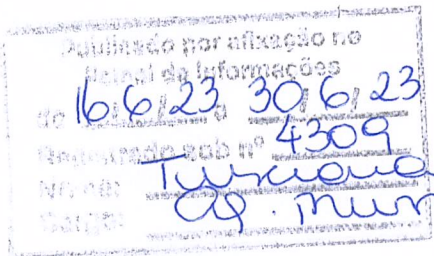 Publicado por afixação no
Painel de Informações
de 16/6/23 a 30/6/23
Registrado sob nº 4309
Nome:
Cargo: